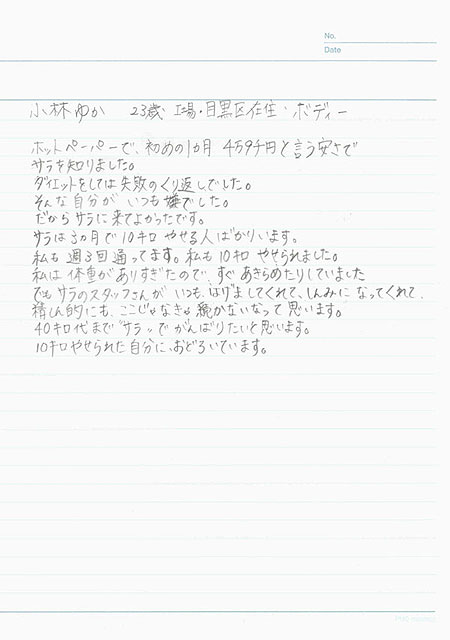 No.
Date
小林ゆか 23歳・工場・目黒区在住・ボディー
ホットペーパーで、初めの1カ月 4万9千円と言う安さで
サラを知りました。
ダイエットをしては失敗のくり返しでした。
そんな自分が いつも嫌でした。
だからサラに来てよかったです。
サラは3カ月で10キロ やせる人ばかりいます。
私も週3回通ってます。私も10キロ やせられました。
私は体重がありすぎたので、すぐあきらめたりしていました
でもサラのスタッフさんが いつも、はげましてくれて、しんみに なってくれて、
精しん的にも、ここじゃなきゃ続かないなって思います。
40キロ代まで"サラ"でがんばりたいと思います。
10キロやせられた自分に、おどろいています。